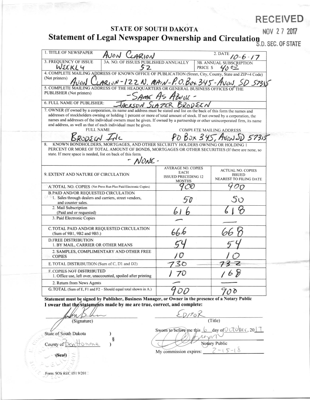 RECEIVED
NOV 27 2017
S.D. SEC. OF STATE
STATE OF SOUTH DAKOTA
Statement of Legal Newspaper Ownership and Circulation
1. TITLE OF NEWSPAPER AVON CLARION
2. DATE 10-6-17
3. FREQUENCY OF ISSUE WEEKLY
3A. NO. OF ISSUES PUBLISHED ANNUALLY 52
3B. ANNUAL SUBSCRIPTION PRICE $
4. COMPLETE MAILING ADDRESS OF KNOWN OFFICE OF PUBLICATION (Street, City, County, State and ZIP+4 Code) (Not printers)
AVON CLARION-122 N. MAIN-P.O. BOX 345-AVON SD 57315
5. COMPLETE MAILING ADDRESS OF THE HEADQUARTERS OR GENERAL BUSINESS OFFICE OF THE PUBLISHER (Not printer)
- SAME AS ABOVE -
6. FULL NAME OF PUBLISHER: JACKSON SLATER BRODEEN
7. OWNER (If owned by a corporation, its name and address must be stated and list on the back of this form the names and
addresses of stockholders owning or holding 1 percent or more of total amount of stock. If not owned by a corporation, the
names and addresses of the individual owners must be given. If owned by a partnership or other unincorporated firm, its name
and address, as well as that of each individual must be given.
FULL NAME
COMPLETE MAILING ADDRESS
BRODEEN INC
PO BOX 345, AVON SD 57315
8. KNOWN BONDHOLDERS, MORTGAGES, AND OTHER SECURITY HOLDERS OWNING OR HOLDING 1
PERCENT OR MORE OF TOTAL AMOUNT OF BONDS, MORTGAGES OR OTHER SECURITIES (If there are none, so
state. If more space is needed, list on back of this form.
- NONE -
9. EXTENT AND NATURE OF CIRCULATION
AVERAGE NO. COPIES EACH ISSUED PRECEDING 12 MONTHS
ACTUAL NO. COPIES ISSUED NEAREST TO FILING DATE
A. TOTAL NO. COPIES 900 900
B. PAID AND/OR REQUESTED CIRCULATION
1. Sales through dealers and carriers, street vendors, and counter sales. 50 50
2. Mail Subscription (Paid and or requested) 616 618
3. Paid Electronic Copies
C. TOTAL PAID AND/OR REQUESTED CIRCULATION (Sum of 9B1, 9B2 and 9B3.) 666 668
D. FREE DISTRIBUTION
1. BY MAIL, CARRIER OR OTHER MEANS 54 54
2. SAMPLES, COMPLIMENTARY AND OTHER FREE COPIES 10 10
E. TOTAL DISTRIBUTION (Sum of C, D1 and D2) 730 732
F. COPIES NOT DISTRIBUTED
1. Office use, left over, unaccounted, spoiled after printing 170 168
2. Return from News Agents
G. TOTAL (Sum of E, F1 and F2 - Should equal total shown in A.) 900 900
Statement must be signed by Publisher, Business Manager, or Owner in the presence of a Notary Public
I swear that the statements made by me are true, correct, and complete:
EDITOR
(Signature)
(Title)
State of South Dakota )
§
County of Bon Homme )
Sworn to before me this 6 day of October 2017
Notary Public
(Seal)
My commission expires: